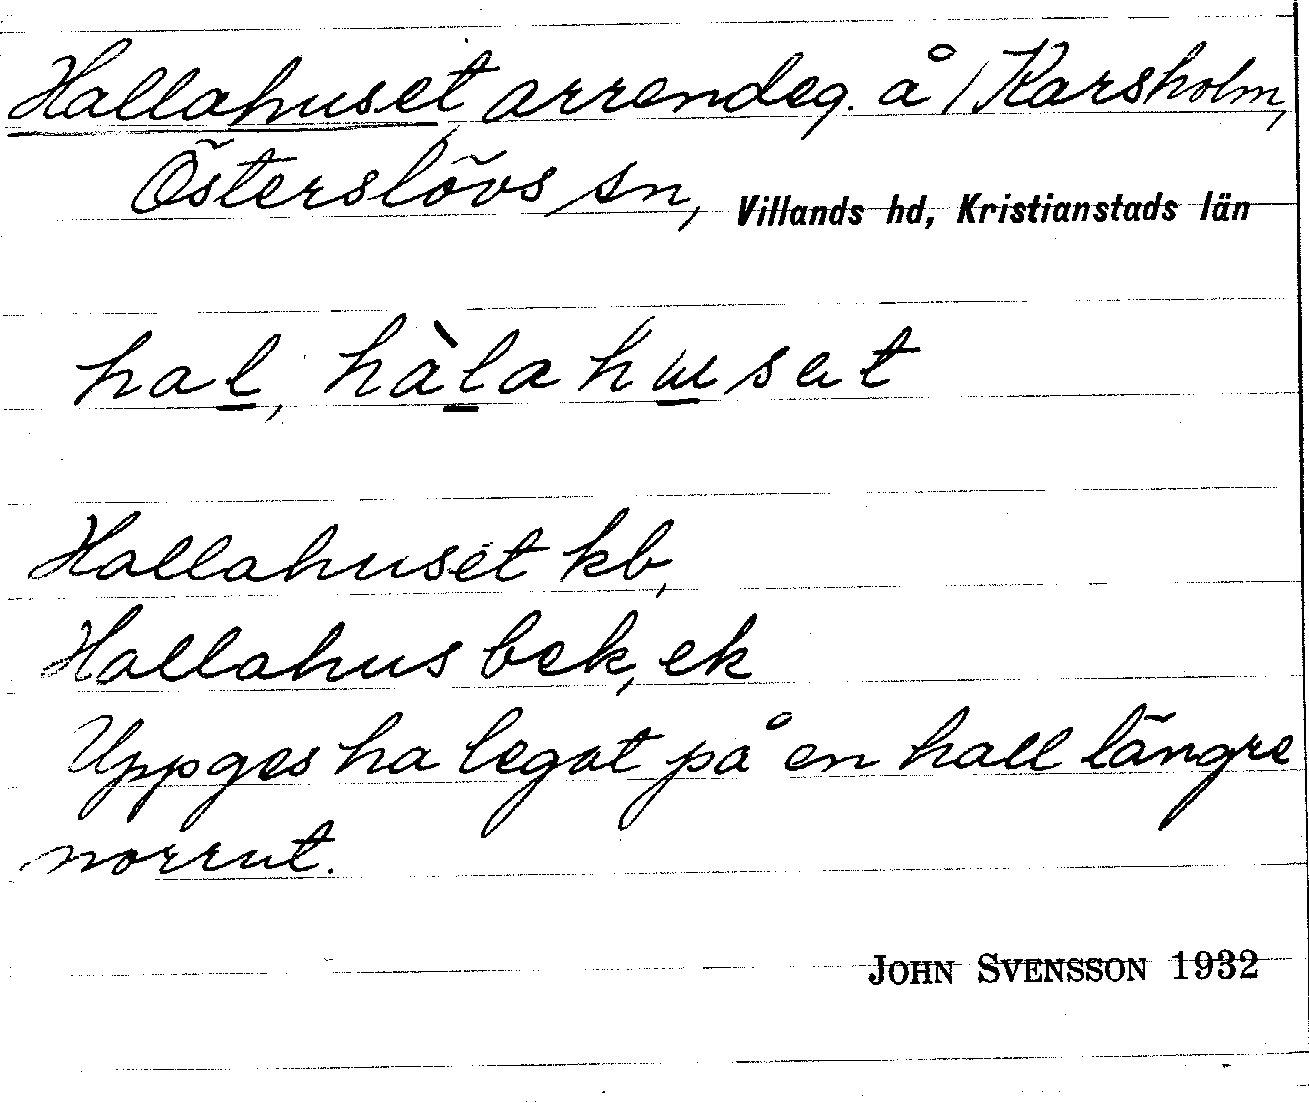 Hallahuset arrendeg. å Karsholm,
Österslövs sn, Villands hd, Kristianstads län
hal, hàlahusat
Hallahuset kb,
Hallahus bek, ek
Uppges ha legat på en hall längre
norrut.
JOHN SVENSSON 1932